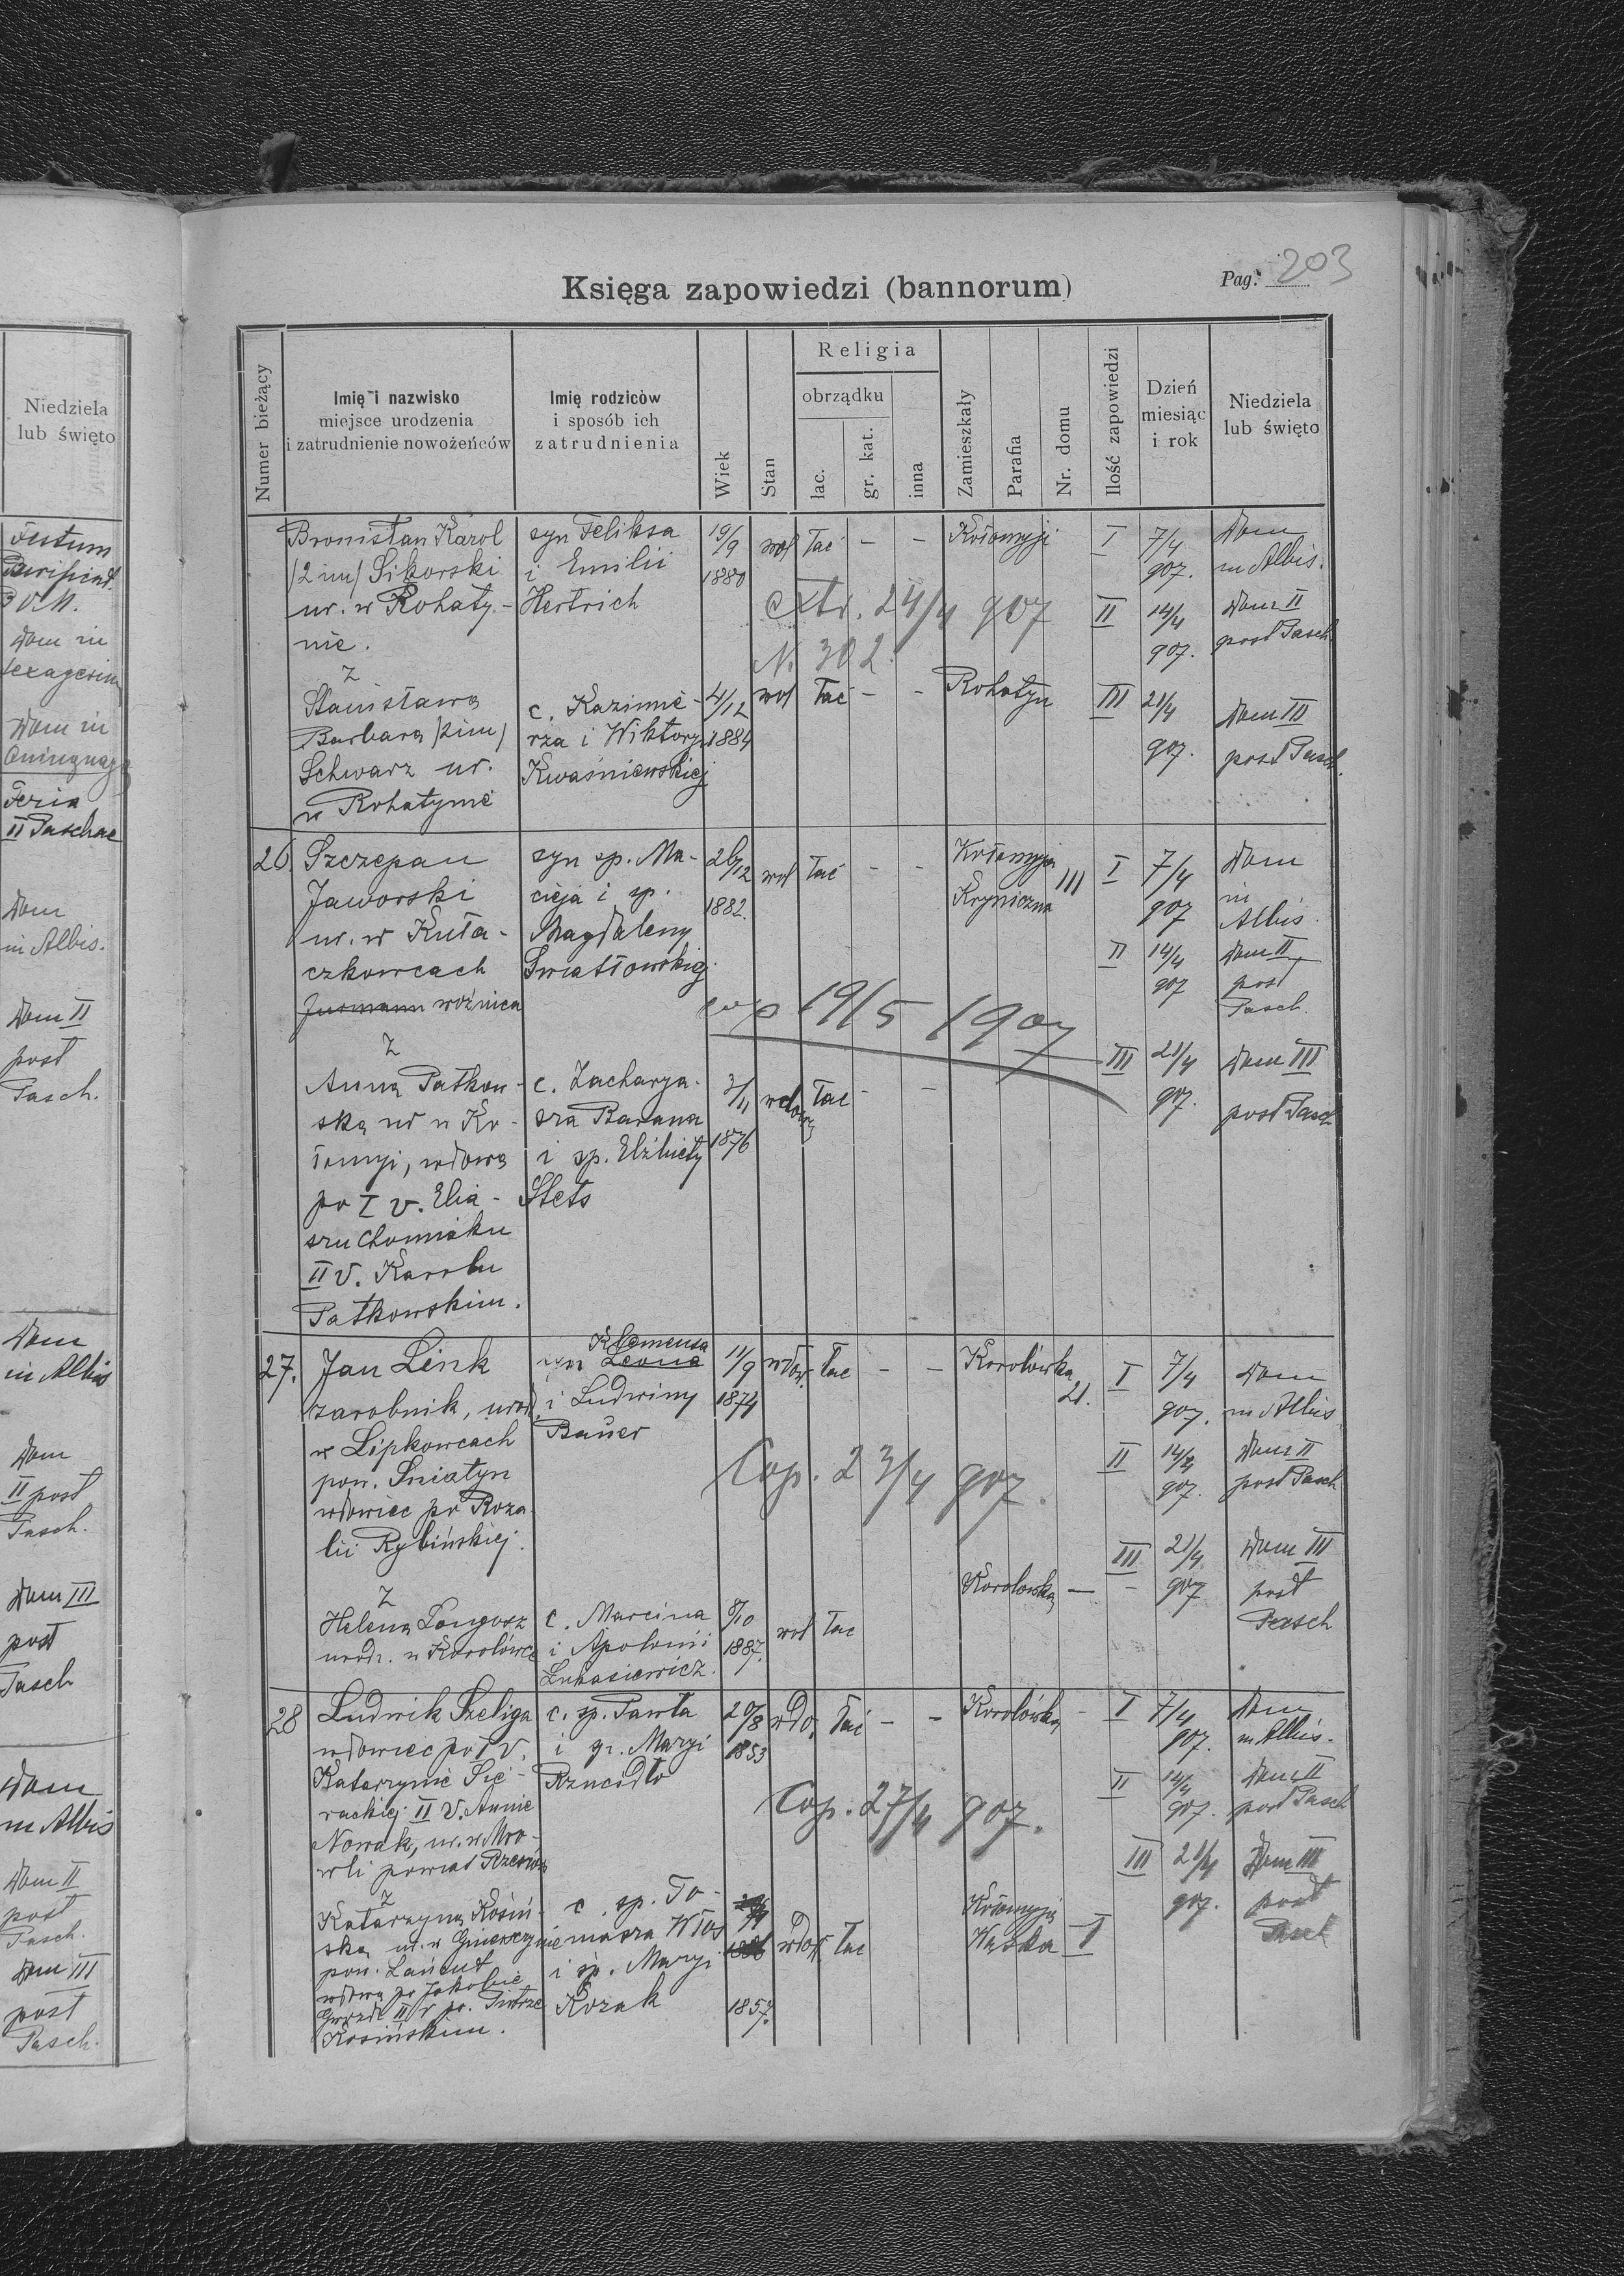 Niedziela
lub święto
Festum
Purificat.
B.V.M.
Dom in
Sexagesima
Dom in
Quinquag.
Feria
II Paschae
Dom
in Albis.
Dom II
post
Pasch.
Dom
in Albis
Dom
II post
Pasch.
Dom III
post
Pasch
Dom
in Albis
Dom II
post
Pasch.
Dom III
post
Pasch.
Księga zapowiedzi (bannorum)
Pag. 203
Numer bieżący
Imię i nazwisko
miejsce urodzenia
i zatrudnienie nowożeńców
Imię rodziców
i sposób ich
zatrudnienia
Wiek
Stan
Religia
obrządku
łac.
gr. kat.
inna
Zamieszkały
Parafia
Nr. domu
Ilość zapowiedzi
Dzień
miesiąc
i rok
Niedziela
lub święto
Bronisław Karol syn Feliksa 19/9 wol łać - - Kołomyji I 7/4 Dom
/2 im/ Sikorski i Emilii 1880 907. in Albis.
ur. w Rohaty- Hertrich extr. 24/4 907 II 14/4 Dom II
nie. N. 302 907. post Pasch
z
Stanisławą c. Kazimie- 4/12 wol łać - - Rohatyn III 21/4 Dom III
Barbarą /2 im/ rza i Wiktory 1884 907. post Pasch.
Schwarz ur. Kwaśniewskiej
w Rohatynie
26. Szczepan syn sp. Ma- 26/12 wol łać - - Kołomyja I 7/4 Dom
Jaworski cieja i sp. 1882. Kryniczna 111 907 in
ur. w Kuła- Magdaleny Albis
czkowcach Swiatłowskiej II 14/4 Dom II
Furmann woźnica 907 post
Pasch.
cop 19/5 1907
z III 21/4 Dom III
Anną Patkow- c. Zacharya- 3/11 wdowy łac - - 907. post Pasch
ską ur w Ko- sza Barana 1876
łomyi, wdową i sp. Elżbiety
po I v. Elia- Stets
szu Chomiaku
II v. Karolu
Patkowskim.
Klemensa
27. Jan Link syn Leona 11/9 wdow. łac - - Korolówka I 7/4 Dom
zarobnik, urod. i Ludwiny 1874 21. 907. in Albis
w Lipkowcach Bauer II 14/4 Dom II
pow. Sniatyn Cop. 23/4 907. 907. post Pasch
wdowiec po Roza
lii Rybińskiej. III 21/4 Dom III
z Korolowka — - 907 post
Heleną Longosz c. Marcina 8/10 wol łac Pasch
urodz. w Korolówce i Apolonii 1887.
Łukasiewicz.
28 Ludwik Szeliga c. sp. Pawła 20/8 wdo, łać - - Korolówka - I 7/4 Dom
wdowiec po I v. i gr. Maryi 1853 907. in Albis.
Katarzynie Sie- Rzucidło II 14/4 Dom II
rackiej II v. Annie Cop. 27/4 907. 907. post Pasch
Nowak, ur. w Mro-
wli powiat Rzeszów III 21/4 Dom III
z 907. post
Pasch
Katarzyną Kosiń- c. sp. To- Kołomyja
ską ur. w masza Włos wdow łac Wązka I
pow. Łańcut i sp. Maryi
wdową po Jakobie Kozak 1857.
II v po. Piotrze
Kosińskim.